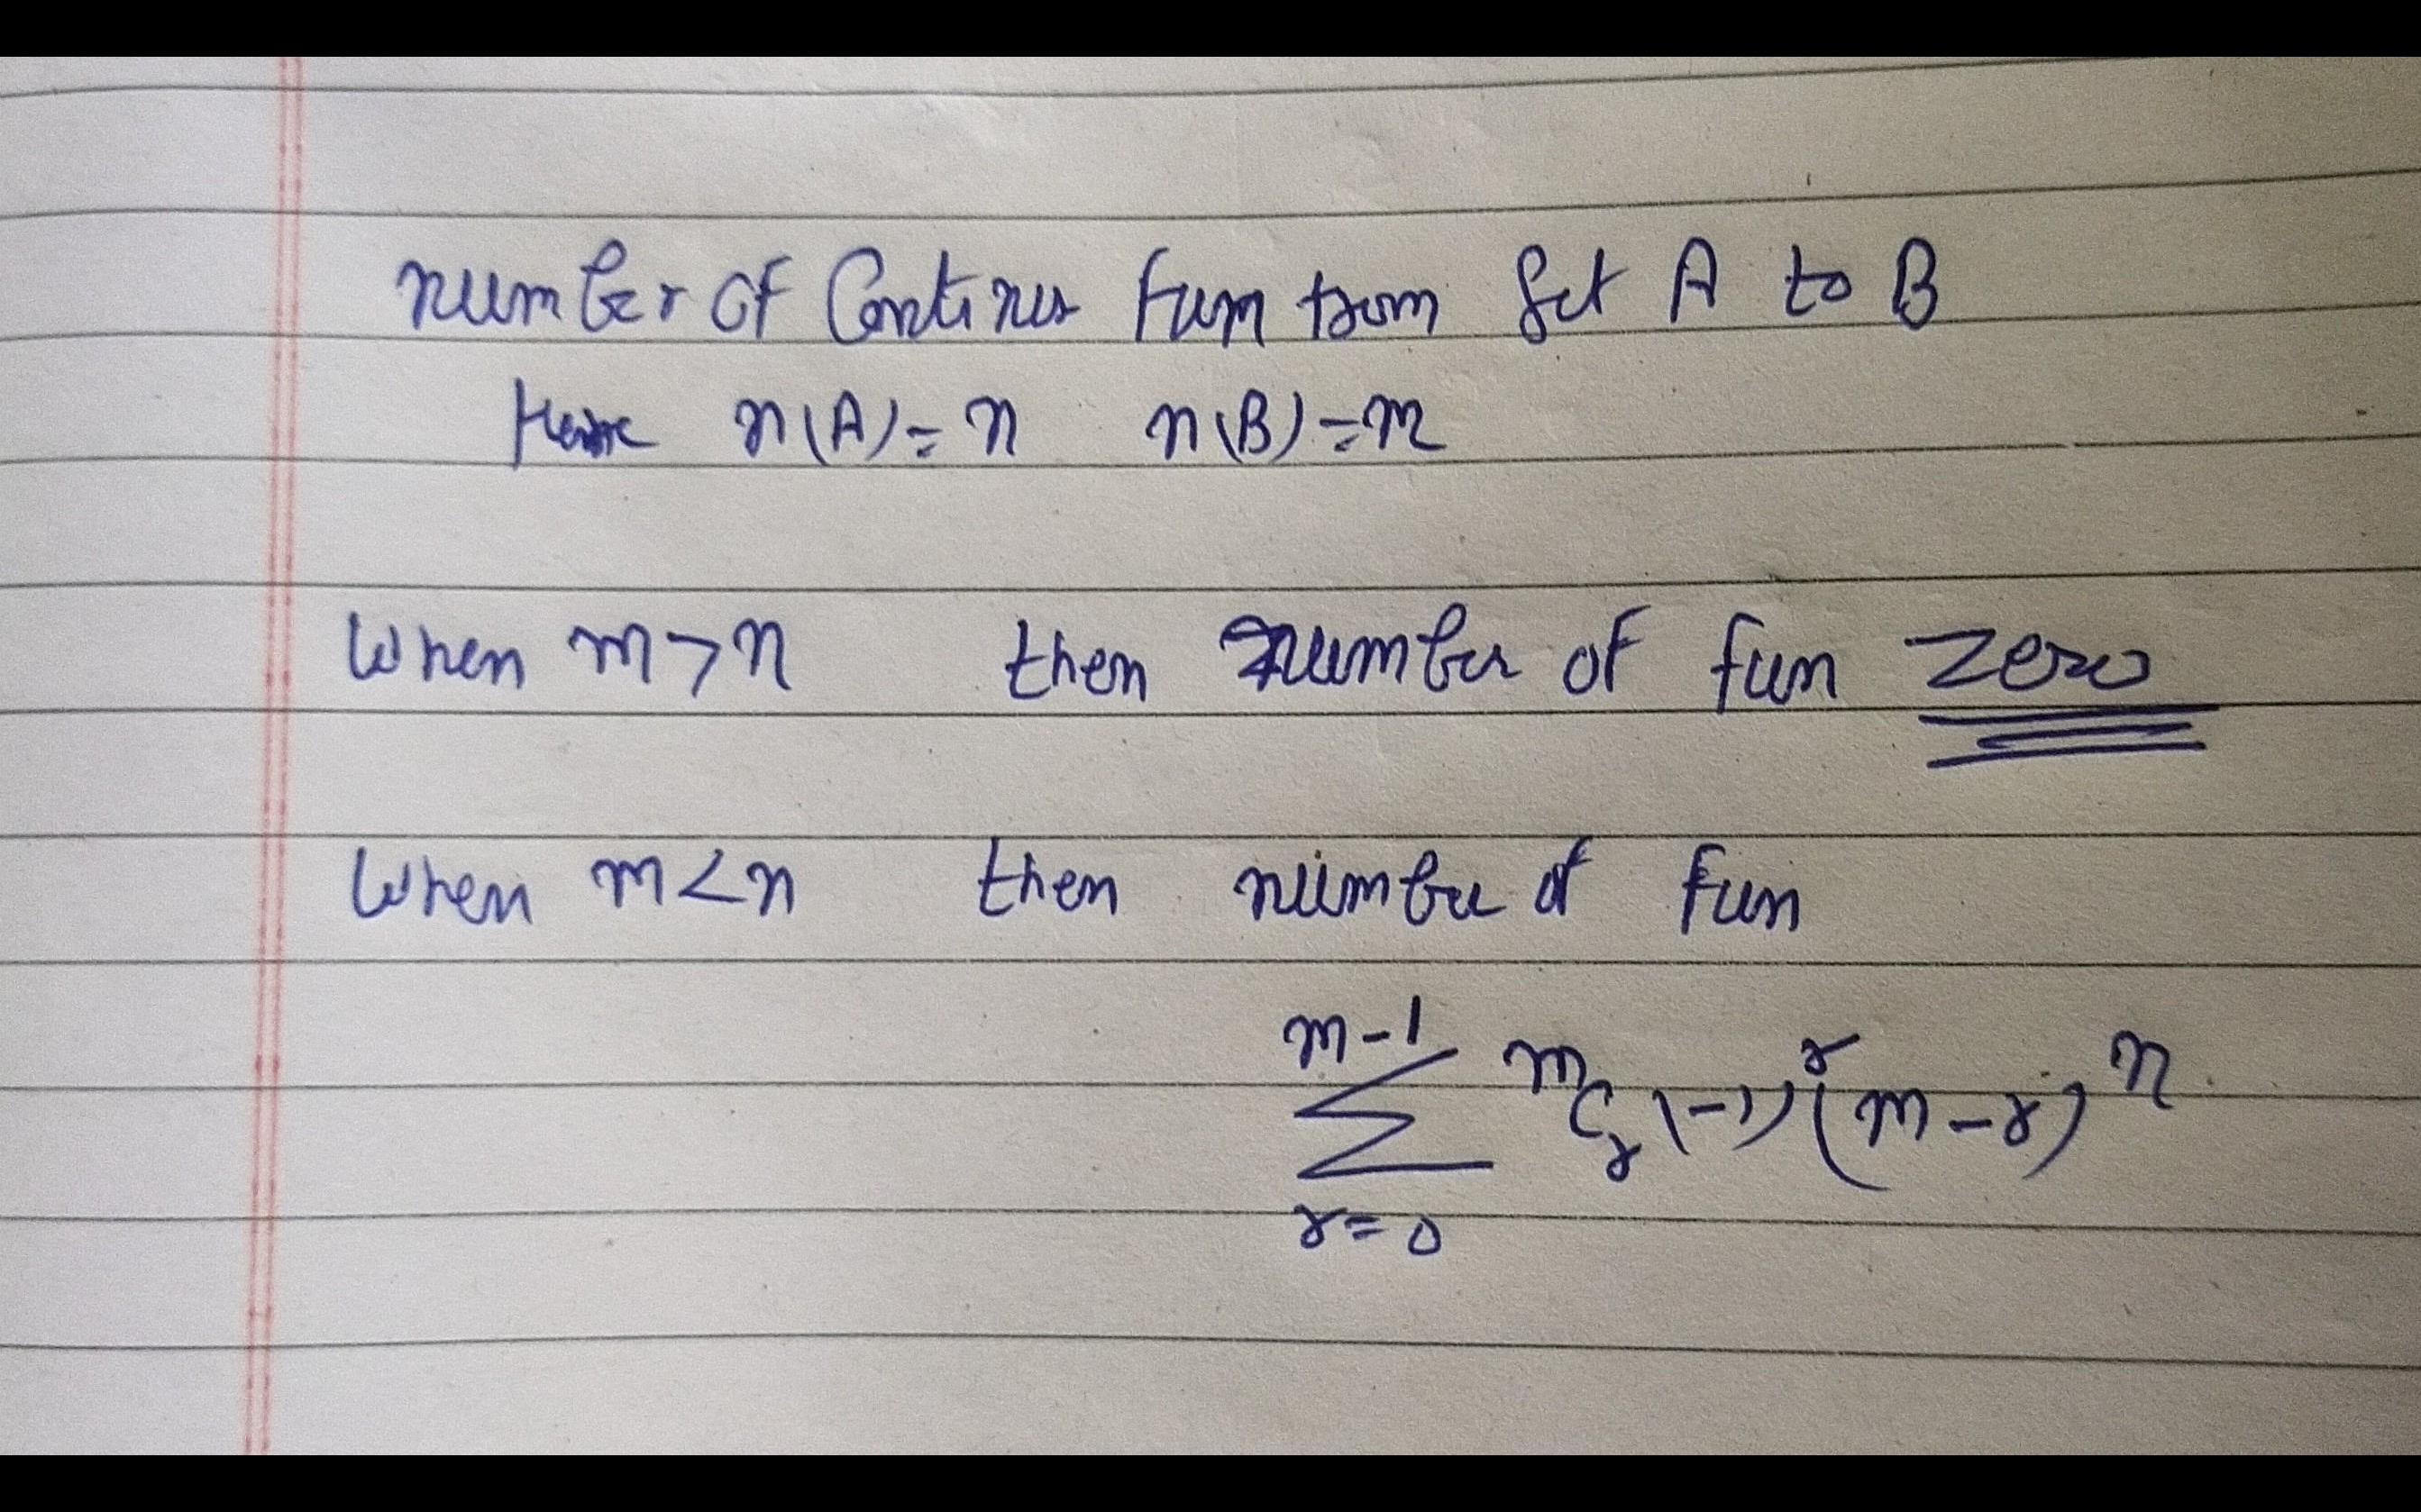 number of Continus fun from Set A to B
Here n(A) = n n(B) = m
When m > n then number of fun zero
When m < n then number of fun
m-1
∑ ᵐCᵣ (-1)ʳ (m-r)ⁿ
r=0